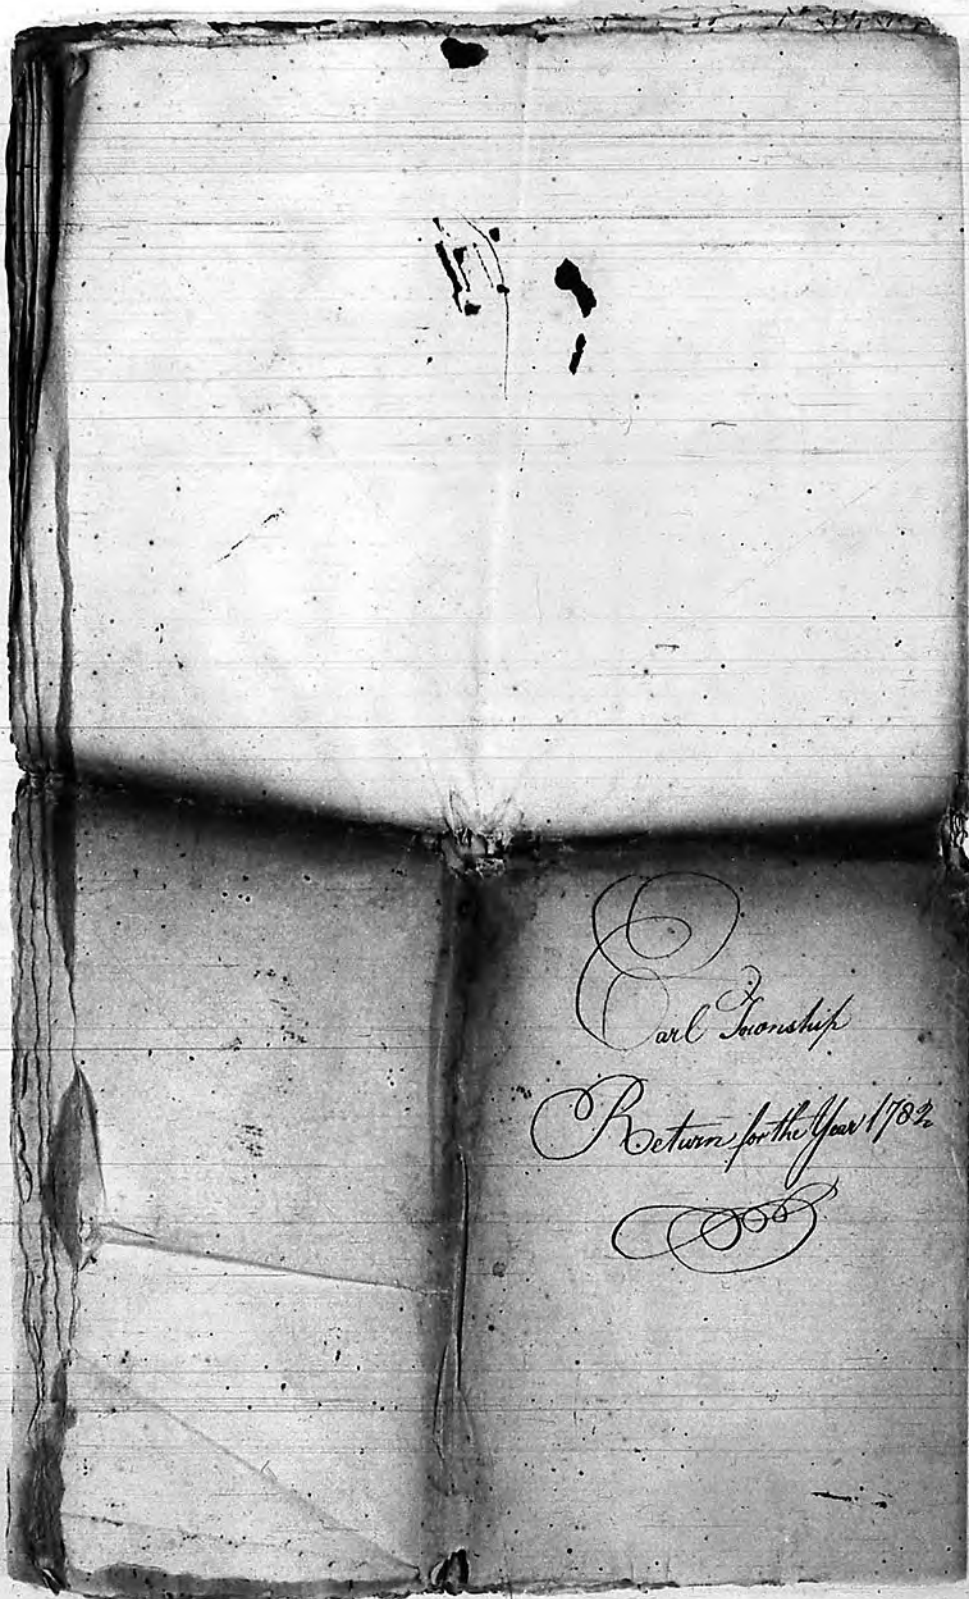 Earl Township
Return for the Year 1782